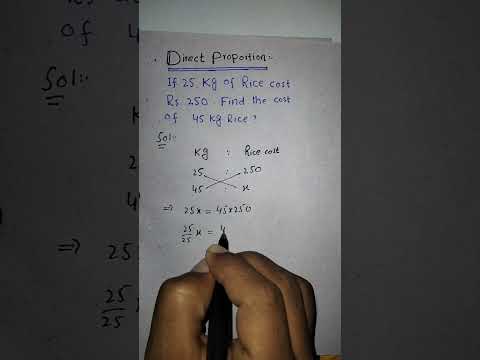 Direct Proportion:-
If 25 Kg of Rice cost
Rs 250. Find the cost
of 45 Kg Rice?
Sol:-
Kg : Rice cost
25 : 250
45 : x
⇒ 25x = 45×250
25/25 x = 4